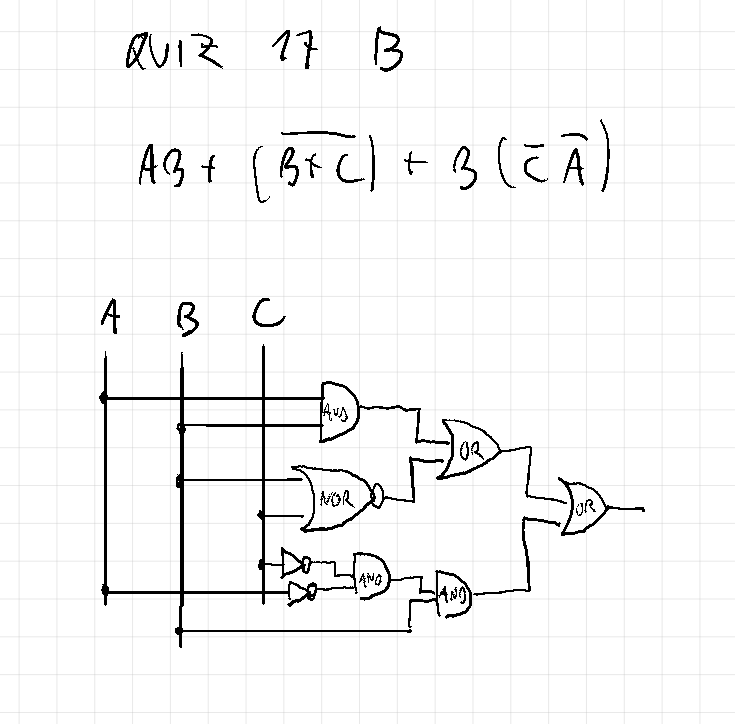 QUIZ 17 B
AB + (B̅+̅C̅) + B (C̅ A̅)
A B C
AND
OR
NOR
OR
AND
AND